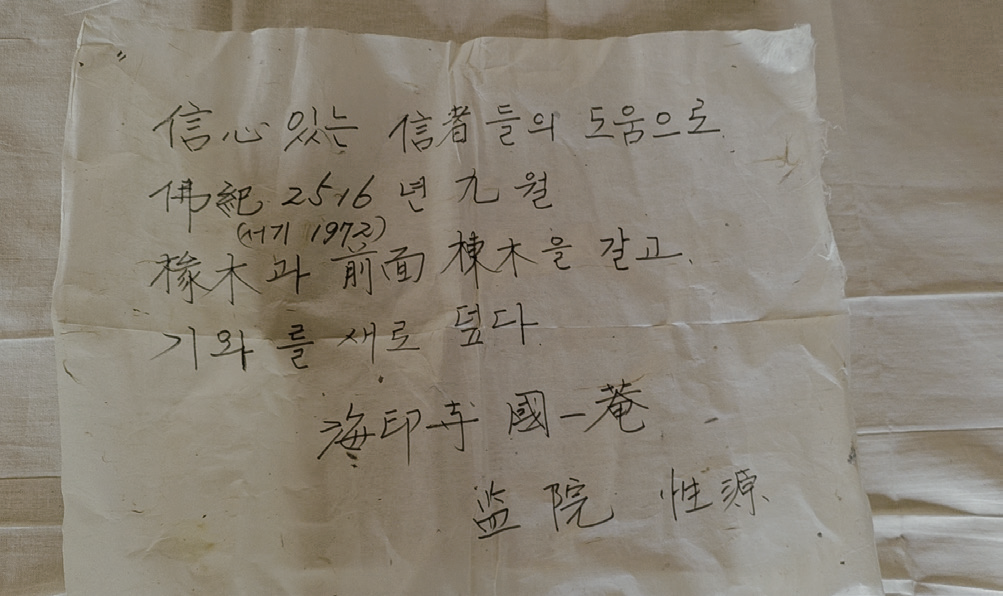 信心 있는 信者들의 도움으로.
佛紀 2516 년 九 월
(서기 1972)
椽木과 前面 棟木을 갈고.
기와를 새로 덮다.
海印寺 國一菴
监院 性源